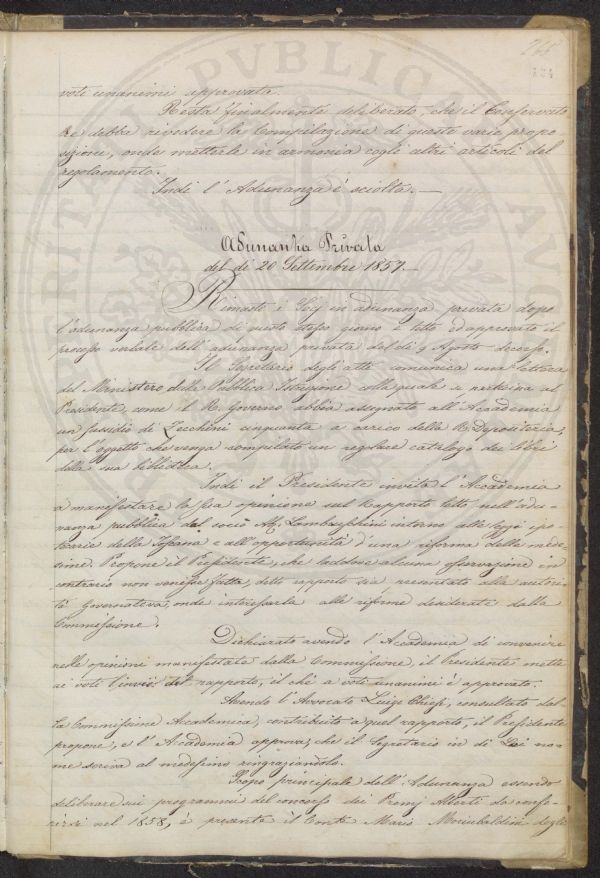 265
voti unanimi approvata.
Resta finalmente deliberato, che il Conservato
re debba rivedere la Compilazione di queste varie propo
sizioni, onde metterle in armonia cogli altri articoli del
regolamento.
Indi l'Adunanza è sciolta.
Adunanza Privata
del dì 20 Settembre 1857.
Rimasto è in adunanza privata dopo
l'adunanza pubblica di questo stesso giorno è letto ed approvato il
processo verbale dell'adunanza privata del dì 9 Agosto decorso.
Il Segretario degli atti comunica una lettera
del Ministero della Pubblica Istruzione colla quale si partecipa al
Presidente, come il R. Governo abbia assegnato all'Accademia
un sussidio di Zecchini cinquanta a carico della R. Depositeria,
per l'oggetto che venga compilato un regolare catalogo dei libri
della sua biblioteca.
Indi il Presidente invita l'Accademia
a manifestare la sua opinione sul Rapporto letto nell'adu-
nanza pubblica dal socio Lambruschini intorno alle leggi ipo
tecarie della Toscana e all'opportunità d'una riforma delle mede-
sime. Propone il Presidente, che laddove alcuna osservazione in
contrario non venisse fatta, detto rapporto sia presentato alle autori-
tà Governative, onde interessarle alle riforme desiderate dalla
Commissione.
Dichiarato avendo l'Accademia di convenire
nelle opinioni manifestate dalla Commissione, il Presidente mette
ai voti l'invio del rapporto, il che a voti unanimi è approvato.
Avendo l'Avvocato Luigi Chiesi, consultato dal-
la Commissione Accademica, contribuito a quel rapporto, il Presidente
propone, e l'Accademia approva, che il Segretario in di Lei no-
me scriva al medesimo ringraziandolo.
Scopo principale dell'Adunanza essendo
deliberare sui programmi del concorso dei Premj Alberti da confe-
rirsi nel 1858, è presente il Conte Mario Moriubaldini degli